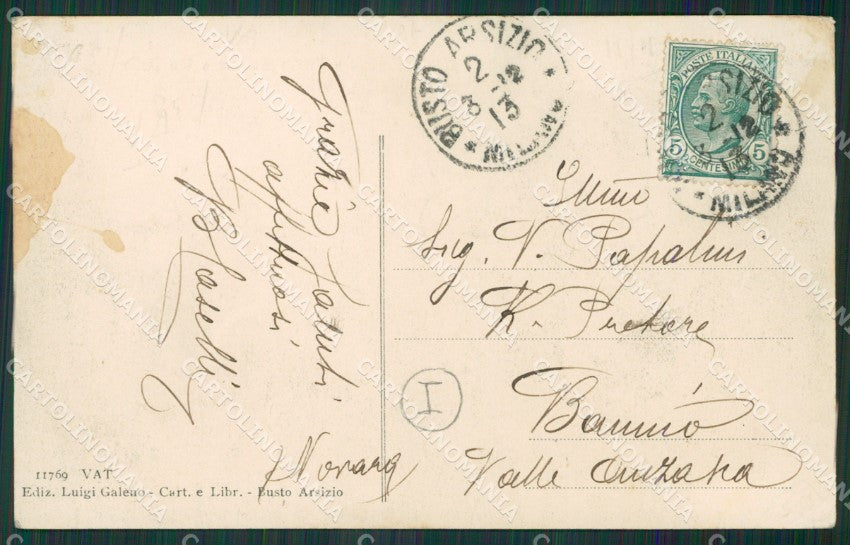 Grazie Saluti
affettuosi
Caselli
BUSTO ARSIZIO
2
3 12
13
* MILANO *
POSTE ITALIANE
5 5
CENTESIMI
SIZIO
2
12
13
* MILANO *
Illmo
Sig. V. Papalini
R. Pretore
Bannio
Valle Anzasca
(Novara)
I
11769 VAT
Ediz. Luigi Galeno - Cart. e Libr. - Busto Arsizio
CARTOLINOMANIA